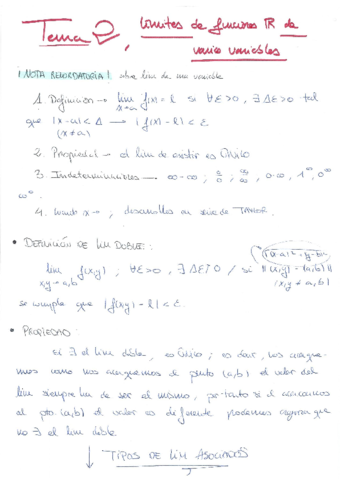 Tema 2, Límites de funciones ℝ de
varias variables
¡NOTA RECORDATORIA! sobre lím de una variable
1. Definición → lim f(x) = l si ∀ε>0, ∃ Δε>0 tal
x→a
que |x-a|<Δ → |f(x)-l|<ε
(x≠a)
2. Propiedad → el lím de existir es único
3. Indeterminaciones → ∞-∞; 0/0; ∞/∞, 0·∞, 1^∞, 0^0
∞^0
4. cuando x→ , desarrollos en serie de TAYLOR
• DEFINICIÓN DE LÍM DOBLE:
lim f(x,y) ; ∀ε>0, ∃ Δε>0 / si ||(x,y)-(a,b)||
x,y→a,b (x,y ≠ a,b)
se cumple que |f(x,y)-l|<ε.
• PROPIEDAD:
Si ∃ el lím doble, es único; es decir, nos acerque-
mos como nos acerquemos al punto (a,b) el valor del
lím siempre ha de ser el mismo, por tanto si al acercarnos
al pto. (a,b) el valor es diferente podemos asegurar que
no ∃ el lím doble.
↓ TIPOS DE LÍM ASOCIADOS